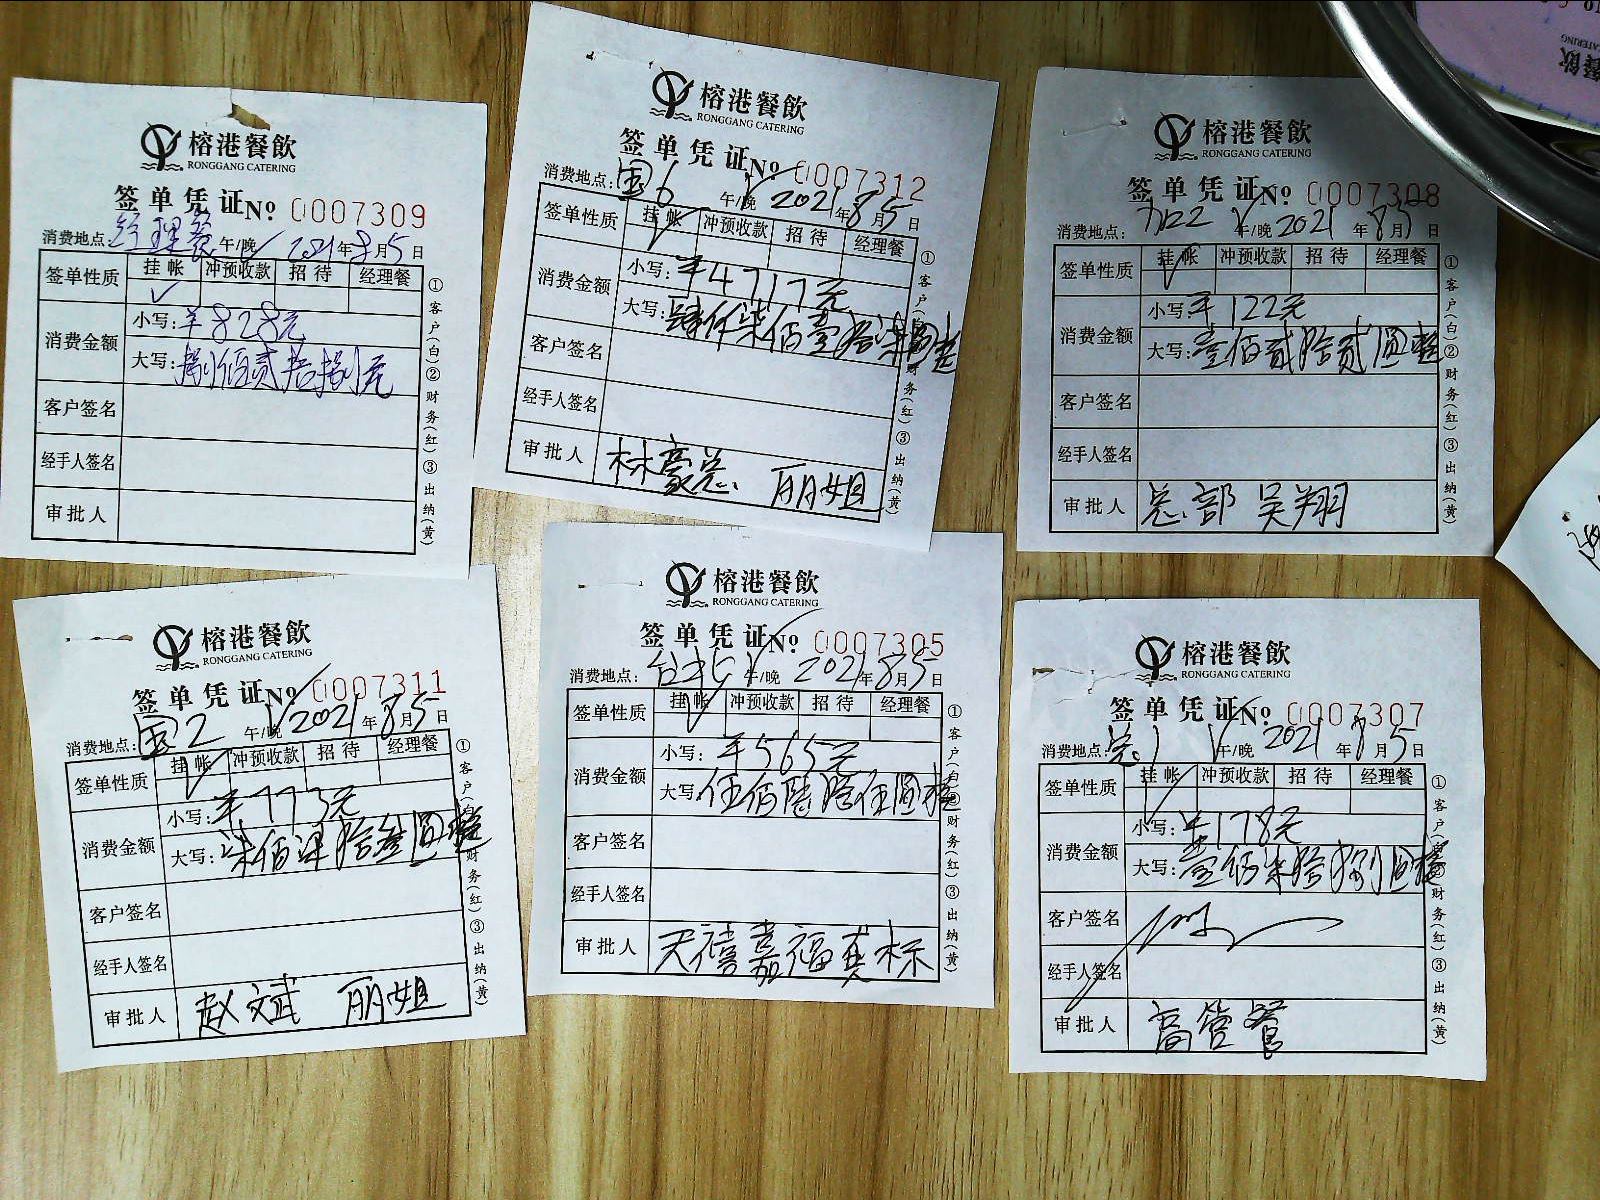 榕港餐飲
RONGGANG CATERING
签单凭证 No 0007309
消费地点: 经理餐 午/晚 2021年8月5日
签单性质 挂帐 冲预收款 招待 经理餐
✓
消费金额 小写: ¥828元
大写: 捌佰贰拾捌元
客户签名
经手人签名
审批人
①客户(白)②财务(红)③出纳(黄)
榕港餐飲
RONGGANG CATERING
签单凭证 No 0007312
消费地点: 国6 午/晚 2021年8月5日
签单性质 挂帐 冲预收款 招待 经理餐
✓
消费金额 小写: ¥4717元
大写: 肆仟柒佰壹拾柒圆整
客户签名
经手人签名
审批人 林豪总 丽姐
①客户(白)②财务(红)③出纳(黄)
榕港餐飲
RONGGANG CATERING
签单凭证 No 0007308
消费地点: 午/晚 2021年8月5日
签单性质 挂帐 冲预收款 招待 经理餐
✓
消费金额 小写: ¥122元
大写: 壹佰贰拾贰圆整
客户签名
经手人签名
审批人 总部 吴翔
①客户(白)②财务(红)③出纳(黄)
榕港餐飲
RONGGANG CATERING
签单凭证 No 0007311
消费地点: 国2 午/晚 2021年8月5日
签单性质 挂帐 冲预收款 招待 经理餐
✓
消费金额 小写: ¥773元
大写: 柒佰柒拾叁圆整
客户签名
经手人签名
审批人 赵斌 丽姐
①客户(白)②财务(红)③出纳(黄)
榕港餐飲
RONGGANG CATERING
签单凭证 No 0007305
消费地点: 台北 午/晚 2021年8月5日
签单性质 挂帐 冲预收款 招待 经理餐
✓
消费金额 小写: ¥565元
大写: 伍佰陆拾伍圆整
客户签名
经手人签名
审批人 天禧嘉福 标
①客户(白)②财务(红)③出纳(黄)
榕港餐飲
RONGGANG CATERING
签单凭证 No 0007307
消费地点: 总1 午/晚 2021年8月5日
签单性质 挂帐 冲预收款 招待 经理餐
✓
消费金额 小写: ¥178元
大写: 壹佰柒拾捌圆整
客户签名
经手人签名
审批人 高管餐
①客户(白)②财务(红)③出纳(黄)